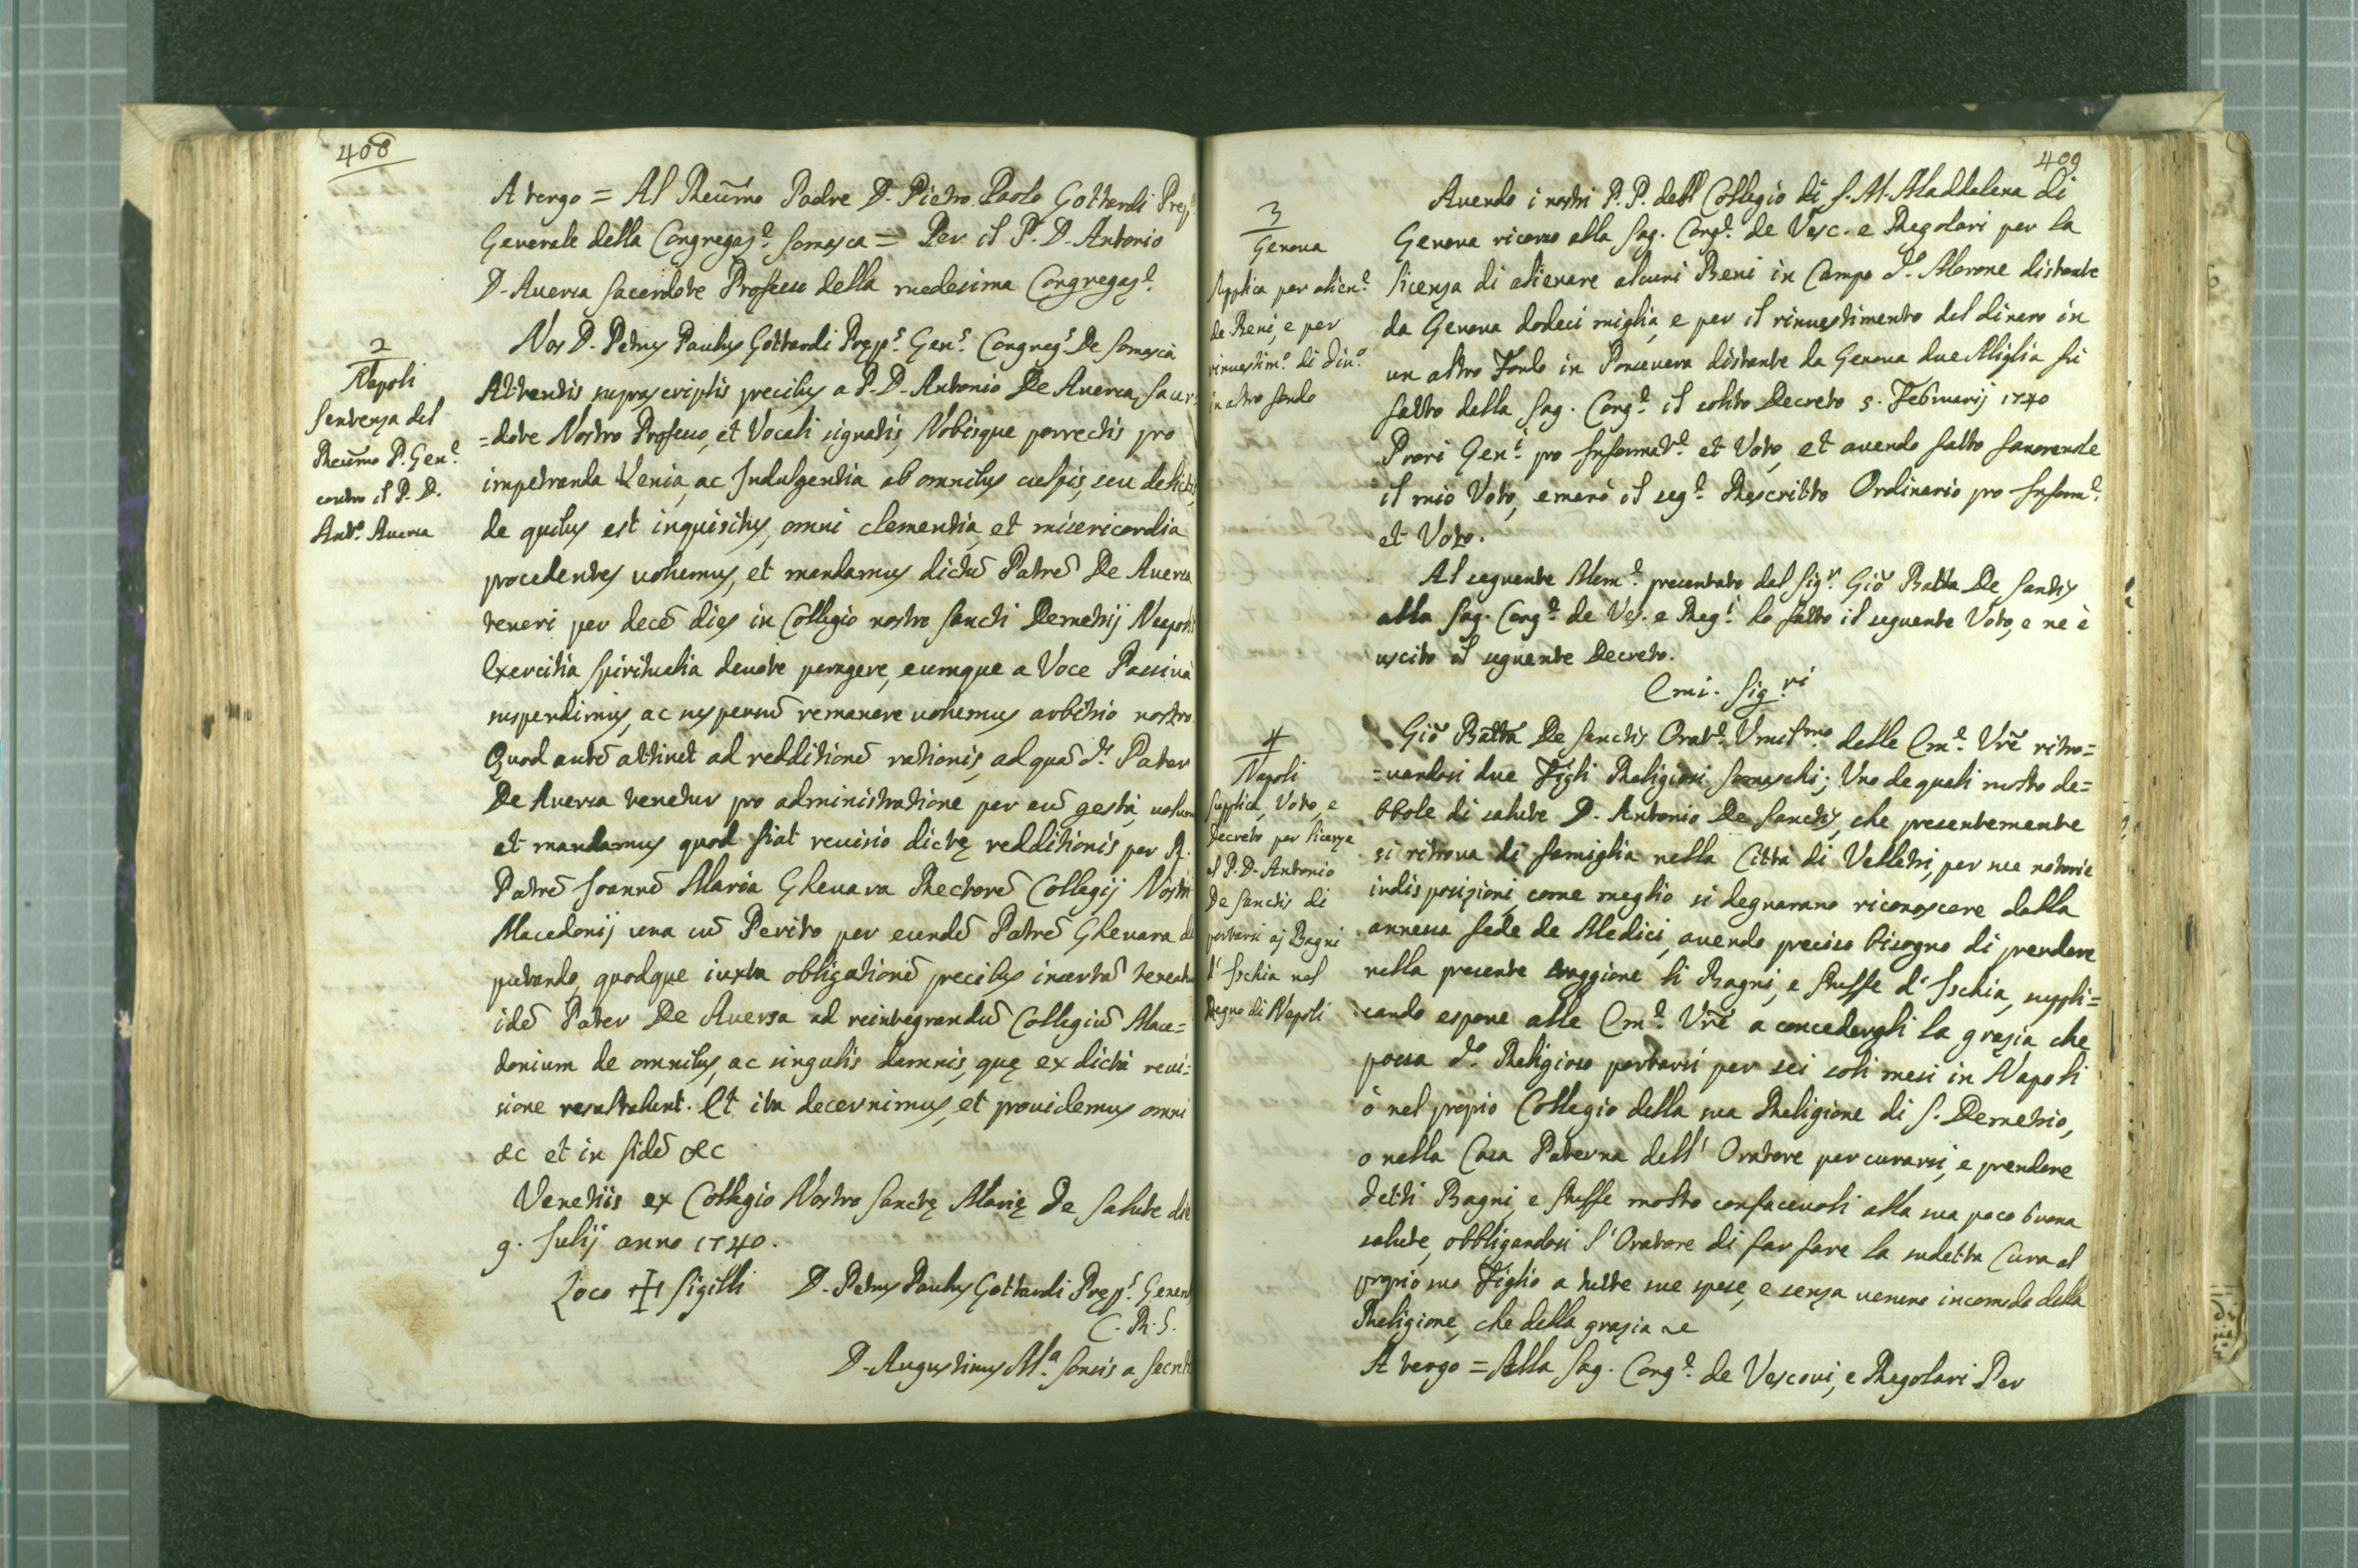 408
A tergo = Al Reūmo Padre D. Pietro Paolo Gottardi Prep.
Generale della Congregaz.e Somasca = Per il P. D. Antonio
D. Auersa Sacerdote Professo della medesima Congregaz.e
2
Napoli
Sentenza del
Reūmo P. Gen.e
contro il P. D.
Ant.o Auersa
Nos D. Petrus Paulus Gottardi Pręp.s Gen.s Congreg.s De Somascà
Attentis suprascriptis precibus a P. D. Antonio De Auersa, Sacer
=dote Nostro Professo, et Vocali signatis, Nobisque porrectis pro
impetranda Venia, ac Indulgentia ab omnibus culpis, seu delictis,
de quibus est inquisitus, omni clementia, et misericordia
procedentes uolumus, et mandamus dictũ Patrẽ De Auersa
teneri per decẽ dies in Collegio nostro Sancti Demetrij Neapolis
Exercitia Spiritualia deuote peragere, eumque a Voce Passiuà
suspendimus, ac suspensũ remanere uolumus arbitrio nostro
Quod autẽ attinet ad redditionẽ rationis, ad quã d.s Pater
De Auersa tenetur pro administratione per eũ gestà, uolumus
et mandamus quod fiat reuisio dictę redditionis per R.
Patrẽ Joannẽ Maria Gheuara Rectorẽ Collegij Nostri
Macedonij una cũ Perito per eundẽ Patrẽ Gheuara de
putando, quodque iuxta obligationẽ precibus insertã teneatur
idẽ Pater De Auersa ad reintegrandũ Collegiũ Mace=
donium de omnibus, ac singulis damnis, quę ex dictà reui=
sione resultabunt. Et ita decernimus, et prouidemus omni
&c et in fidẽ &c
Venetiis ex Collegio Nostro Sanctę Marię de Salute die
9. Julij anno 1740.
Loco ✠ Sigilli D. Petrus Paulus Gottardi Pręp.s General
C. R. S.
D. Augustinus M.a a Secret
409
3
Genoua
Supplica per alien.e
de Beni, e per
rinuestim.o di din.o
in altro fondo
Auendo i nostri P. P. dell Collegio di S. M. Maddalena di
Genoua ricorso alla Sag. Cong.e de Vesc. e Regolari per la
licenza di alienare alcuni Beni in Campo d.o Marone distante
da Genoua dodeci miglia, e per il rinuestimento del dinaro in
un altro Fondo in Ponceuera distante da Genoua due Miglia fù
fatto dalla Sag. Cong.e il solito Decreto 5. Februarij 1740
Prori Gen.i pro Informat.e et Voto, et auendo fatto fauoreuole
il mio Voto, emanò il seg.e Rescritto Ordinario pro Inform.e
et Voto.
Al seguente Mem.e presentato dal Sig.r Giõ Batta De Santis
alla Sag. Cong.e de Ves. e Reg.i hò fatto il seguente Voto, e ne è
uscito il seguente Decreto.
Emi. Sig.ri
4
Napoli
Supplica, Voto, e
Decreto per licenza
al P. D. Antonio
De Sanctis di
portarsi aj Bagni
d'Ischia nel
Regno di Napoli
Giõ Batta De Sanctis Orat.e Vmil.mo delle Em.e Vrẽ ritro=
=uandosi due Figli Religiosi Somaschi; Vno de quali molto de=
bbole di salute D. Antonio De Sanctis, che presentemente
si ritroua di famiglia nella Città di Velletri, per sue notorie
indisposizioni, come meglio si degnarano riconoscere dalla
annessa fede de Medici, auendo preciso bisogno di prendere
nella presente staggione li Bagni, e stuffe d'Ischia, suppli=
cando espone alle Em.e Vrẽ a concedergli la grazia che
possa d.o Religioso portarsi per sei soli mesi in Napoli
ò nel propio Collegio della sua Religione di S. Demetrio,
o nella Casa Paterna dell'Oratore per curarsi, e prendere
detti Bagni, e stuffe molto confaceuoli alla sua poco buona
salute, obbligandosi l'Oratore di far fare la sudetta Cura al
proprio suo Figlio a tutte sue spese, e senza uerun incomodo della
Religione, che della grazia &c
A tergo = Alla Sag. Cong.e de Vescoui, e Regolari Per